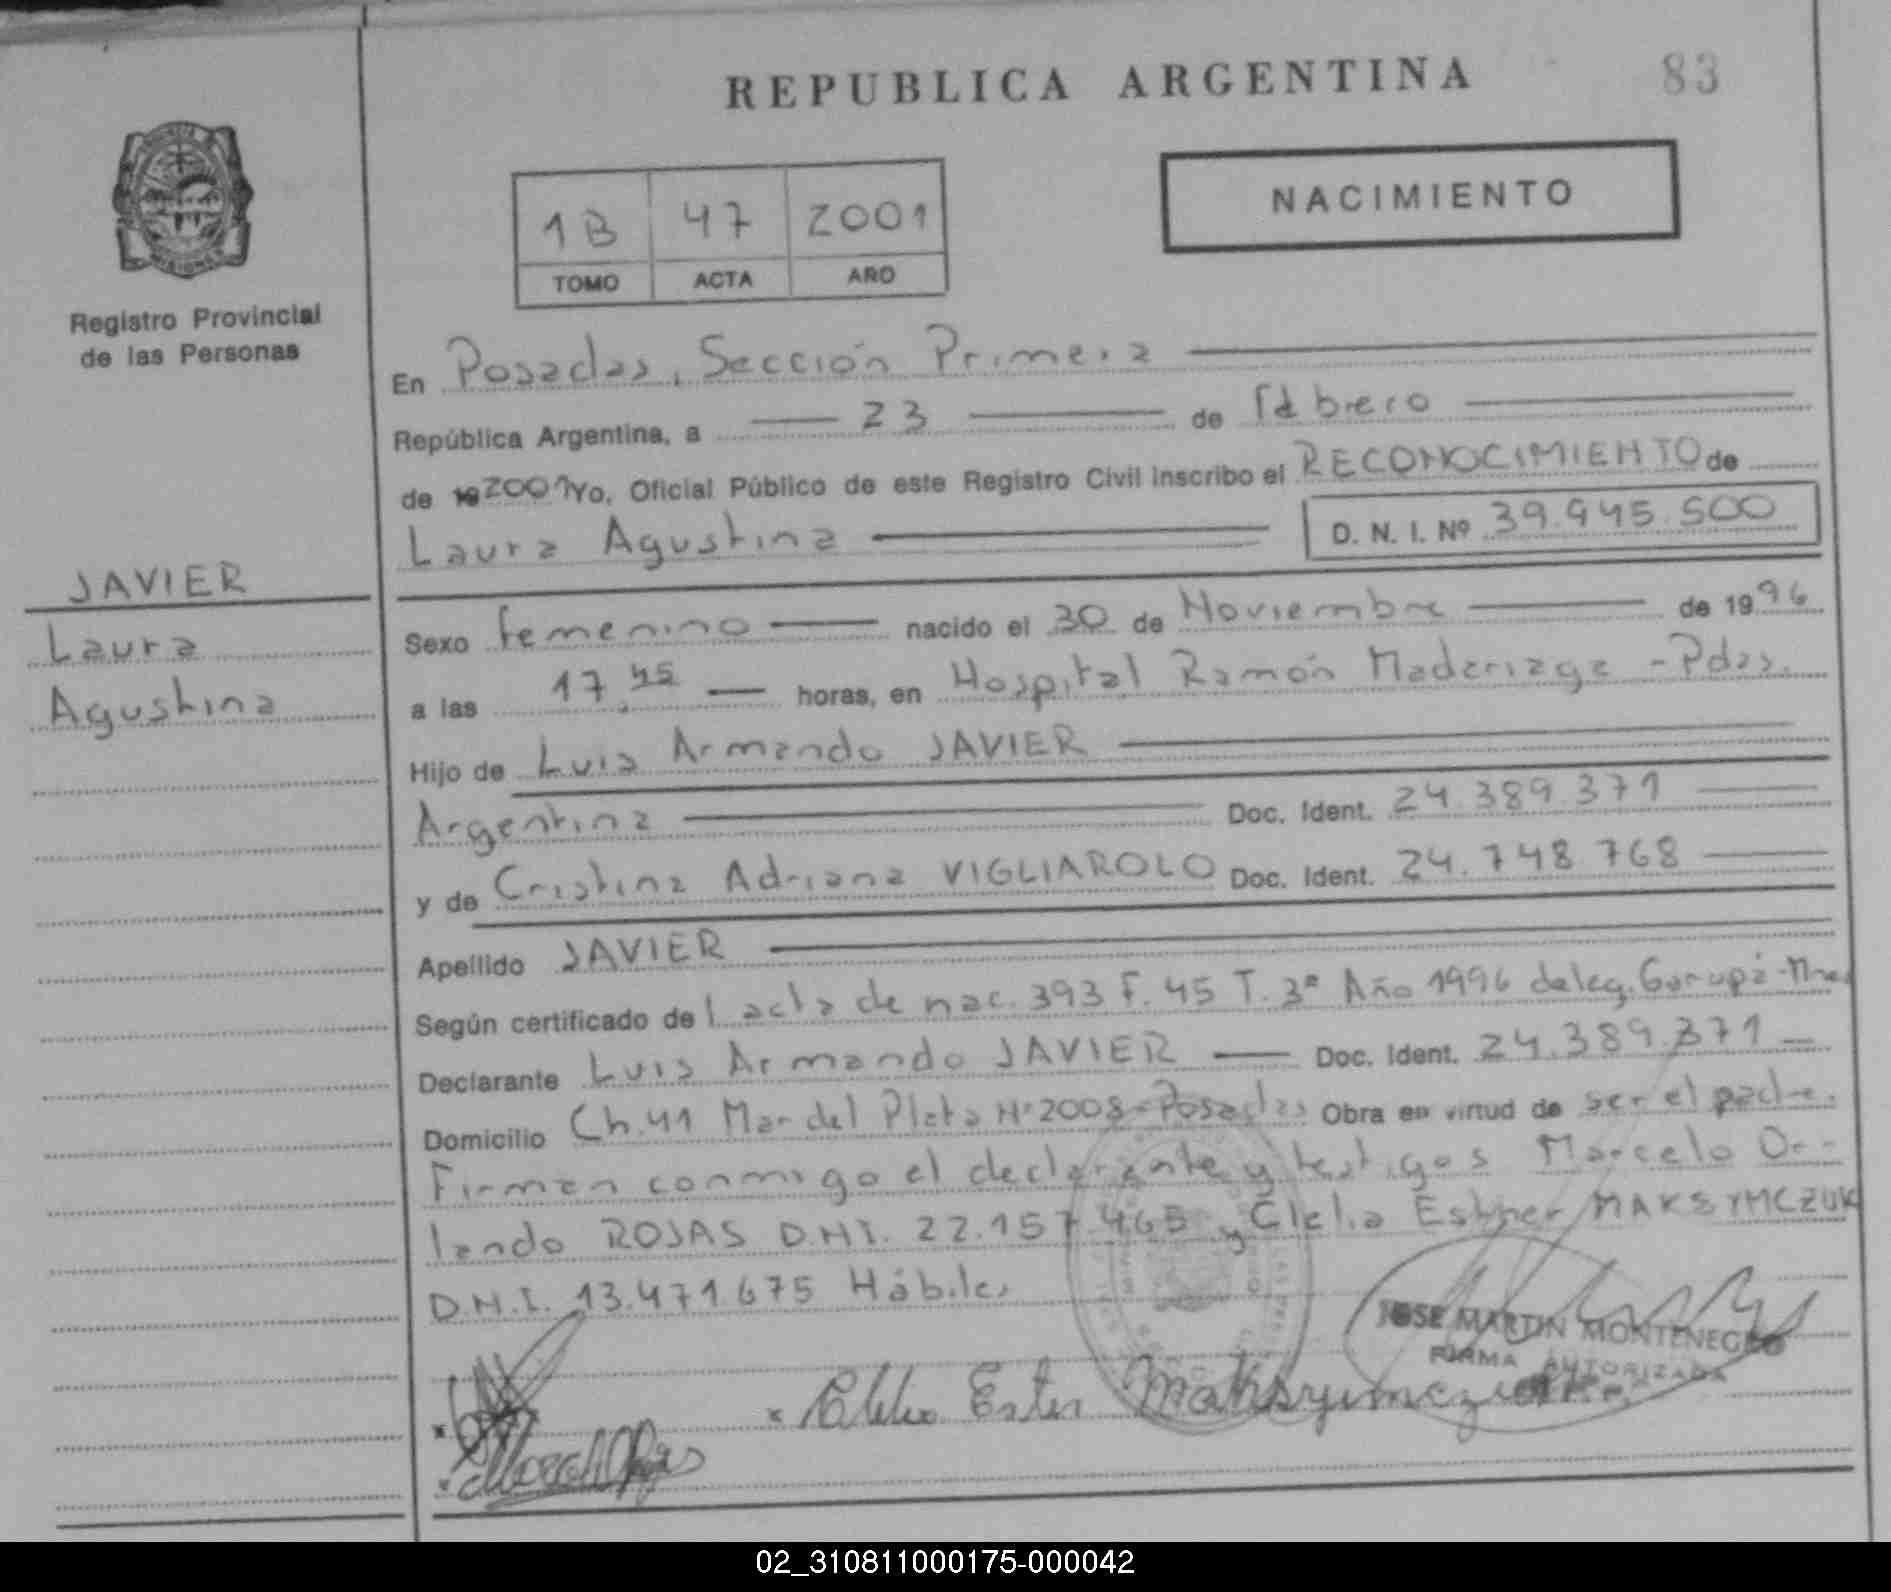 REPUBLICA ARGENTINA
83
NACIMIENTO
1B 47 2001
TOMO ACTA AÑO
MISIONES
Registro Provincial
de las Personas
JAVIER
Laura
Agustina
En Posadas, Sección Primera
República Argentina, a 23 de febrero
de 19 2001 Yo, Oficial Público de este Registro Civil inscribo el RECONOCIMIENTO de
Laura Agustina D. N. I. Nº 39.945.500
Sexo femenino nacido el 30 de Noviembre de 1996
a las 17,45 horas, en Hospital Ramón Madariaga - Pdas.
Hijo de Luis Armando JAVIER
Argentina Doc. Ident. 24.389.371
y de Cristina Adriana VIGLIAROLO Doc. Ident. 24.748.768
Apellido JAVIER
Según certificado de l acta de nac. 393 F. 45 T. 3º Año 1996 deleg. Garupá-Mnes
Declarante Luis Armando JAVIER Doc. Ident. 24.389.371
Domicilio Ch. 41 Mar del Plata Nº 2008 - Posadas Obra en virtud de ser el padre.
Firman conmigo el declarante y testigos Marcelo Or-
lando ROJAS D.N.I. 22.157.465 y Clelia Esther MAKSYMCZUK
D.N.I. 13.471.675 Hábiles
JOSE MARTIN MONTENEGRO
FIRMA AUTORIZADA
Ester Maksymczuk
02_310811000175-000042